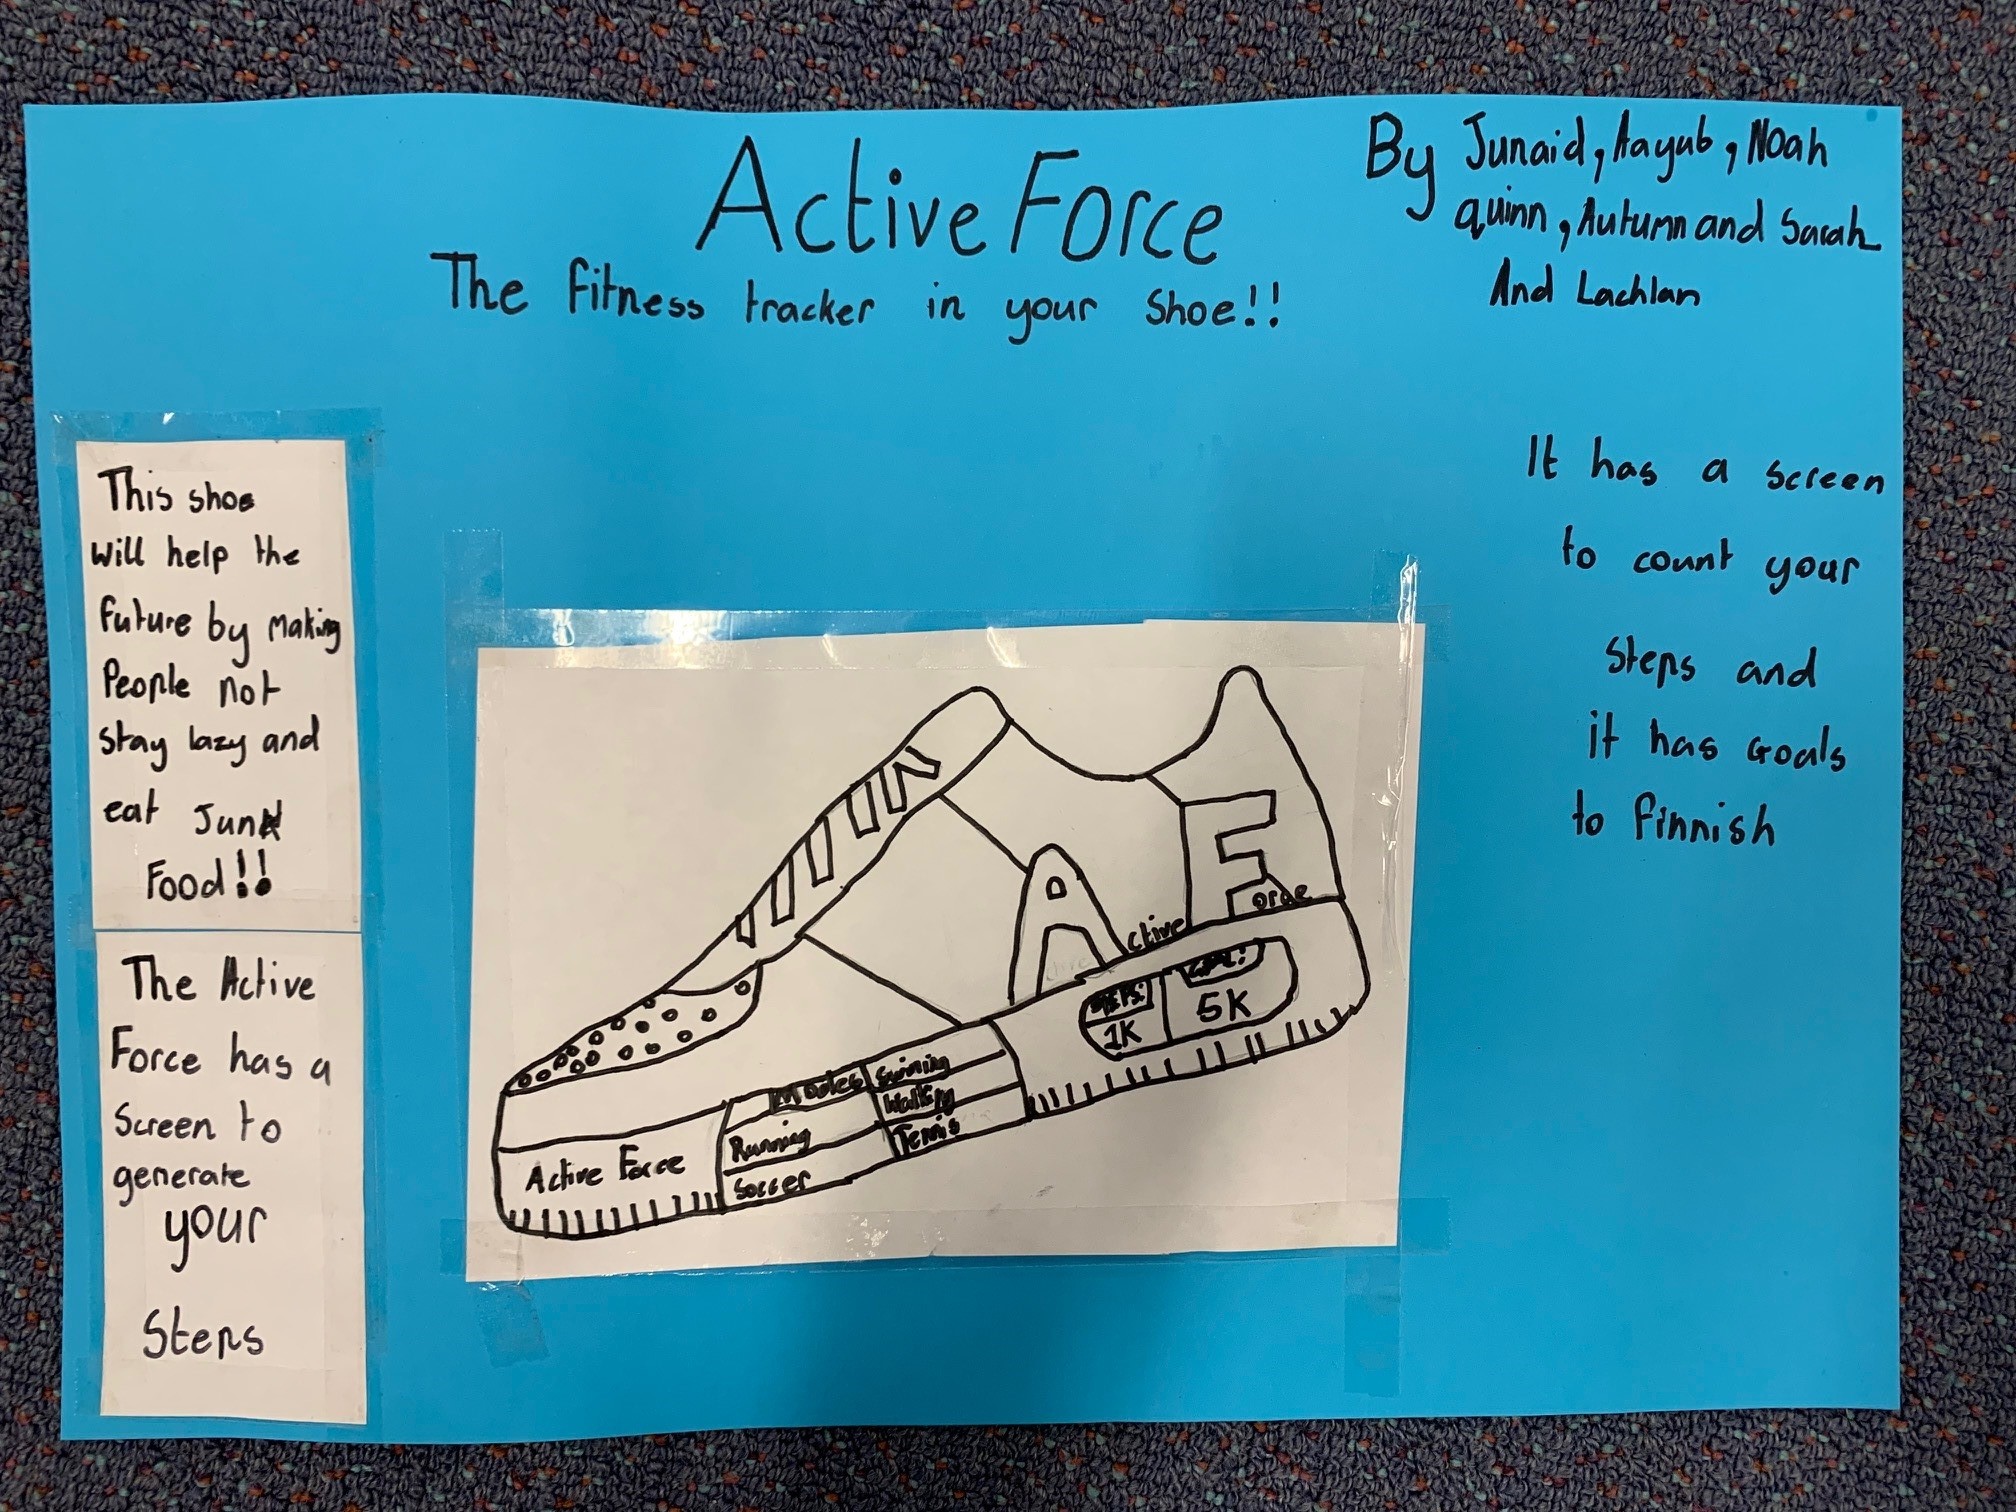 Active Force
The fitness tracker in your shoe!!
By Junaid, Aayub, Noah
quinn, Autumn and Sarah
And Lachlan
This shoe
will help the
future by Making
People not
stay lazy and
eat Junk
Food!!
The Active
Force has a
Screen to
generate
your
Steps
It has a screen
to count your
Steps and
it has Goals
to finnish
F
orce
A
ctive
Goal:
Steps:
5K
1K
Modes
Swiming
Walking
Running
Tennis
Soccer
Active Force